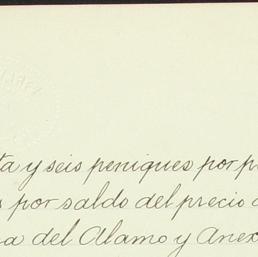 ta y seis peniques por p
s por saldo del precio
a del Alamo y Anex